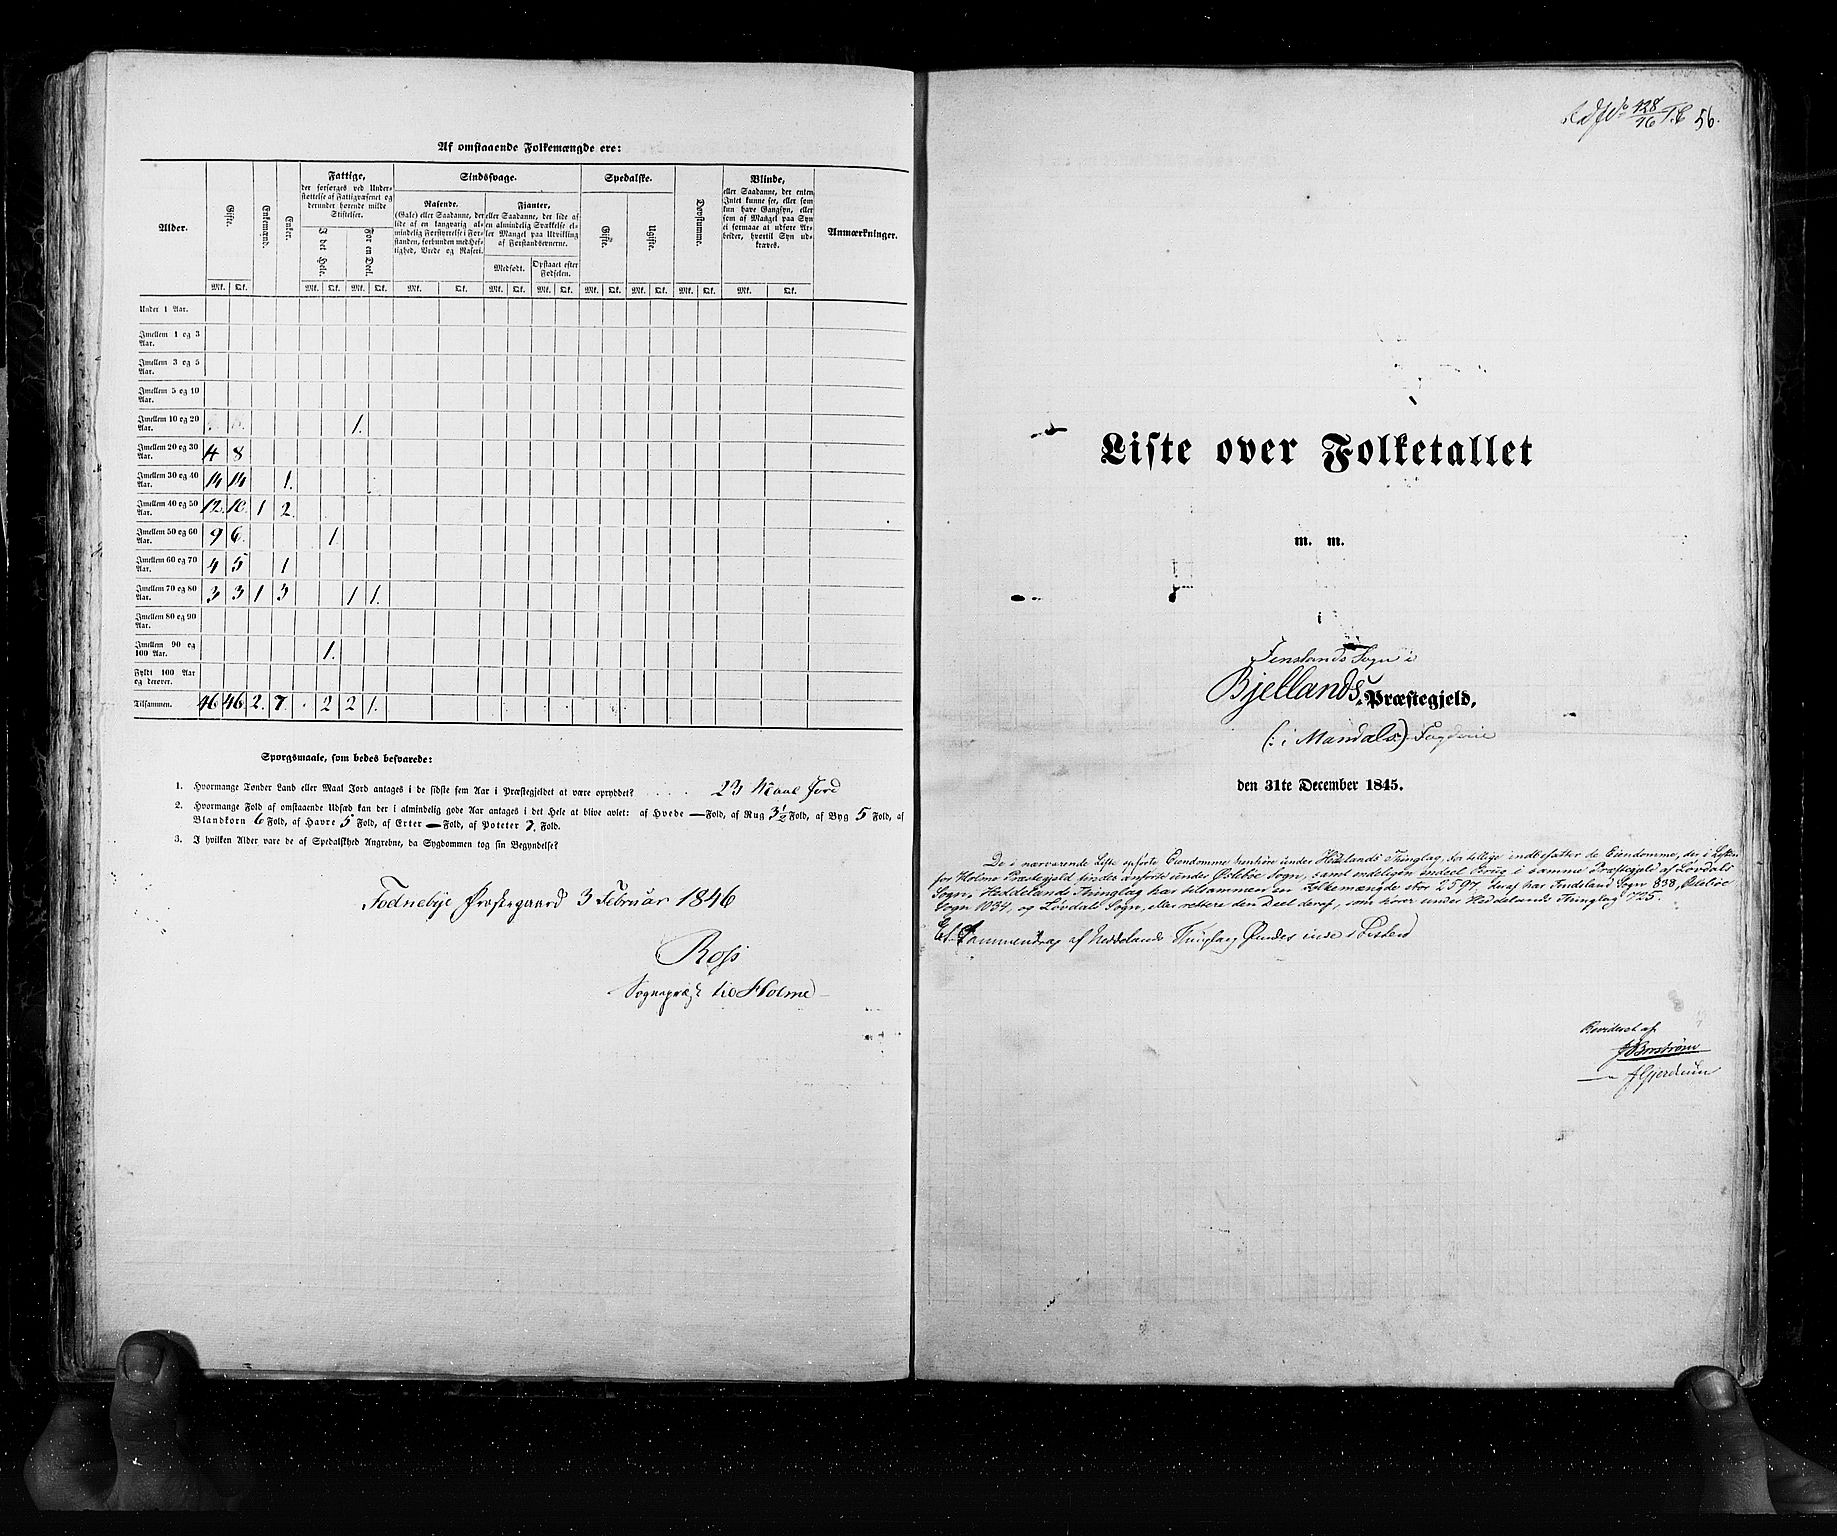 Af omstaaende Folkemængde ere:
Alder. Gifte. Enkemænd. Enker. Fattige, Sindssvage. Spedalske. Døvstumme. Blinde, Anmærkninger.
der forsørges ved Under-
støttelse af Fattigvæsenet og
derunder hørende milde
Stiftelser.
I det Hele. For en Deel.
Rasende.
(Gale) eller Saadanne, der
lide af en langvarig al-
mindelig Forstyrrelse i For-
standen, forbunden med Hef-
tighed, Vrede og Raseri.
Fjanter,
eller Saadanne, der lide af
en almindelig Svækkelse el-
ler Mangel paa Udvikling
af Forstandsevnerne.
Medfødt. Opstaaet efter
Fødselen.
Gifte. Ugifte.
eller Saadanne, der enten
Intet kunne see, eller som
kun have Gangsyn, eller
som af Mangel paa Syn
ei formaae at udføre Ar-
beider, hvortil Syn ud-
kræves.
Mk. Qk. Mk. Qk. Mk. Qk. Mk. Qk. Mk. Qk. Mk. Qk. Mk. Qk. Mk. Qk. Mk. Qk. Mk. Qk.
Under 1 Aar.
Imellem 1 og 3
Aar.
Imellem 3 og 5
Aar.
Imellem 5 og 10
Aar.
Imellem 10 og 20
Aar. 1.
Imellem 20 og 30
Aar. 4 8
Imellem 30 og 40
Aar. 14 14 1.
Imellem 40 og 50
Aar. 12. 10. 1 2.
Imellem 50 og 60
Aar. 9 6. 1
Imellem 60 og 70
Aar. 4 5 1
Imellem 70 og 80
Aar. 3 3 1 3 1 1.
Imellem 80 og 90
Aar.
Imellem 90 og
100 Aar. 1.
Fyldt 100 Aar
og derover.
Tilsammen. 46 46 2. 7. 2 2 1.
Spørgsmaale, som bedes besvarede:
1. Hvormange Tønder Land eller Maal Jord antages i de sidste fem Aar i Præstegjeldet at være opryddet? 23 Maal Jord
2. Hvormange Fold af omstaaende Udsæd kan der i almindelig gode Aar antages i det Hele at blive avlet: af Hvede — Fold, af Rug 3½ Fold, af Byg 5 Fold, af
Blandkorn 6 Fold, af Havre 5 Fold, af Erter — Fold, af Poteter 7. Fold.
3. I hvilken Alder vare de af Spedalskhed Angrebne, da Sygdommen tog sin Begyndelse?
Fodnebye Præstegaard 3 Februar 1846
Ross
Sognepræst til Holme
128/16 56.
Liste over Folketallet
m. m.
i
Finslands Sogn i
Bjellands Præstegjeld,
(: i Mandals) Fogderie
den 31te December 1845.
De i nærværende Liste opførte Eiendomme henhøre under Heddelands Thinglag, der tillige indbefatter de Eiendomme, der i Listen
for Holme Præstegjeld findes anførte under Øslebø Sogn, samt endeligen endeel Brug i samme Præstegjeld af Løvdals
Sogn. Heddelands Thinglag har tilsammen en Folkemængde stor 2597, deraf har Finsland Sogn 838, Øslebøe
Sogn 1034, og Løvdals Sogn, eller rettere den Deel deraf, som hører under Heddelands Thinglag 725.
Et Sammendrag af Heddelands Thinglag findes inde i Listen
Revideret af
Gjerdrum